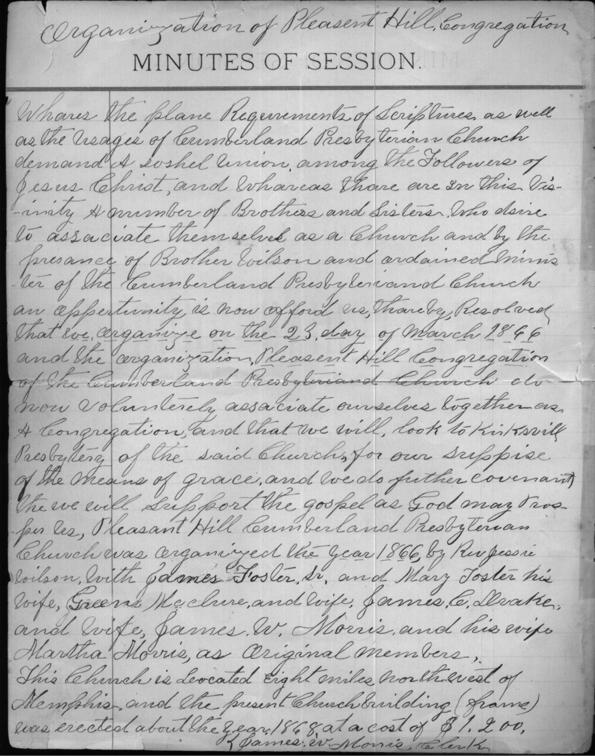 Organization of Pleasent Hill, Congregation
MINUTES OF SESSION.
Whares the plane Requirements of Scriptures as well
as the Usages of Cumberland Presbyterian Church
demand A soshel Union, among the Followers of
Jesus Christ, and Whareas thare are in this Vis-
-inity A number of Brothers and Sisters Who dsire
to assaciate themselvs as a Church and by the
presance of Brother Wilson and ardained Minis
ter of the Cumberland Presbyteriand Church
an appertunity is now afford us, thareby, Resolved
that we, Organize on the 23, day of March 1866
and the Organization, Pleasent Hill Congregation
of the Cumberland Presbyteriand Church do
now Volunterely assaciate ourselves together as
A Congregation, and that we will, look to Kirksvill
Presbytery of the said Church, for our suppise
of the means of grace, and we do futher covenant
the we will support the gospel as God may Pros-
per us, Pleasant Hill Cumberland Presbyterian
Church was Organized the year 1866, by Rev Jessie
Wilson, With James Foster, Sr. and Mary Foster his
Wife, Green Maclure, and Wife, James, C. Drake,
and Wife, James. W. Morris, and his wife
Martha Morris, as Original members,
This Church is Located Eight miles northwest of
Memphis, and the present Church building (frame)
was erected about the year 1868, at a cost of $1,200,
James. W Morris, Clerk